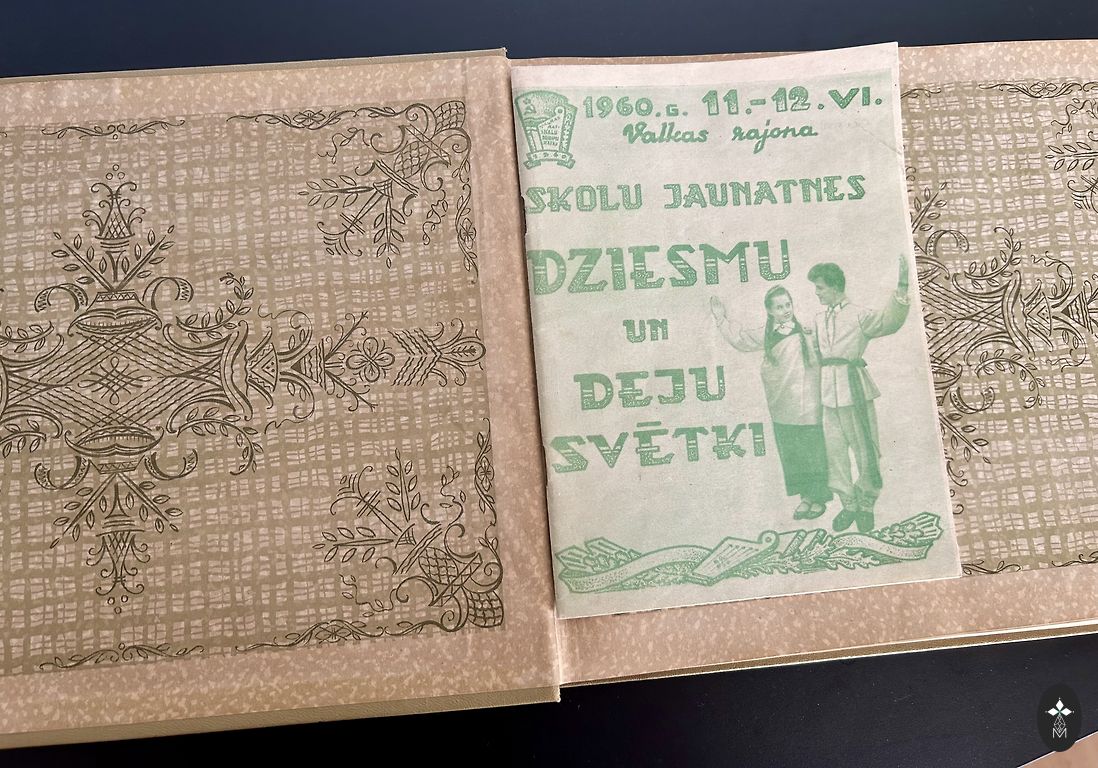 1960. G. 11.-12. VI.
Valkas rajona
SKOLU JAUNATNES
DZIESMU
UN
DEJU
SVĒTKI
1960
M